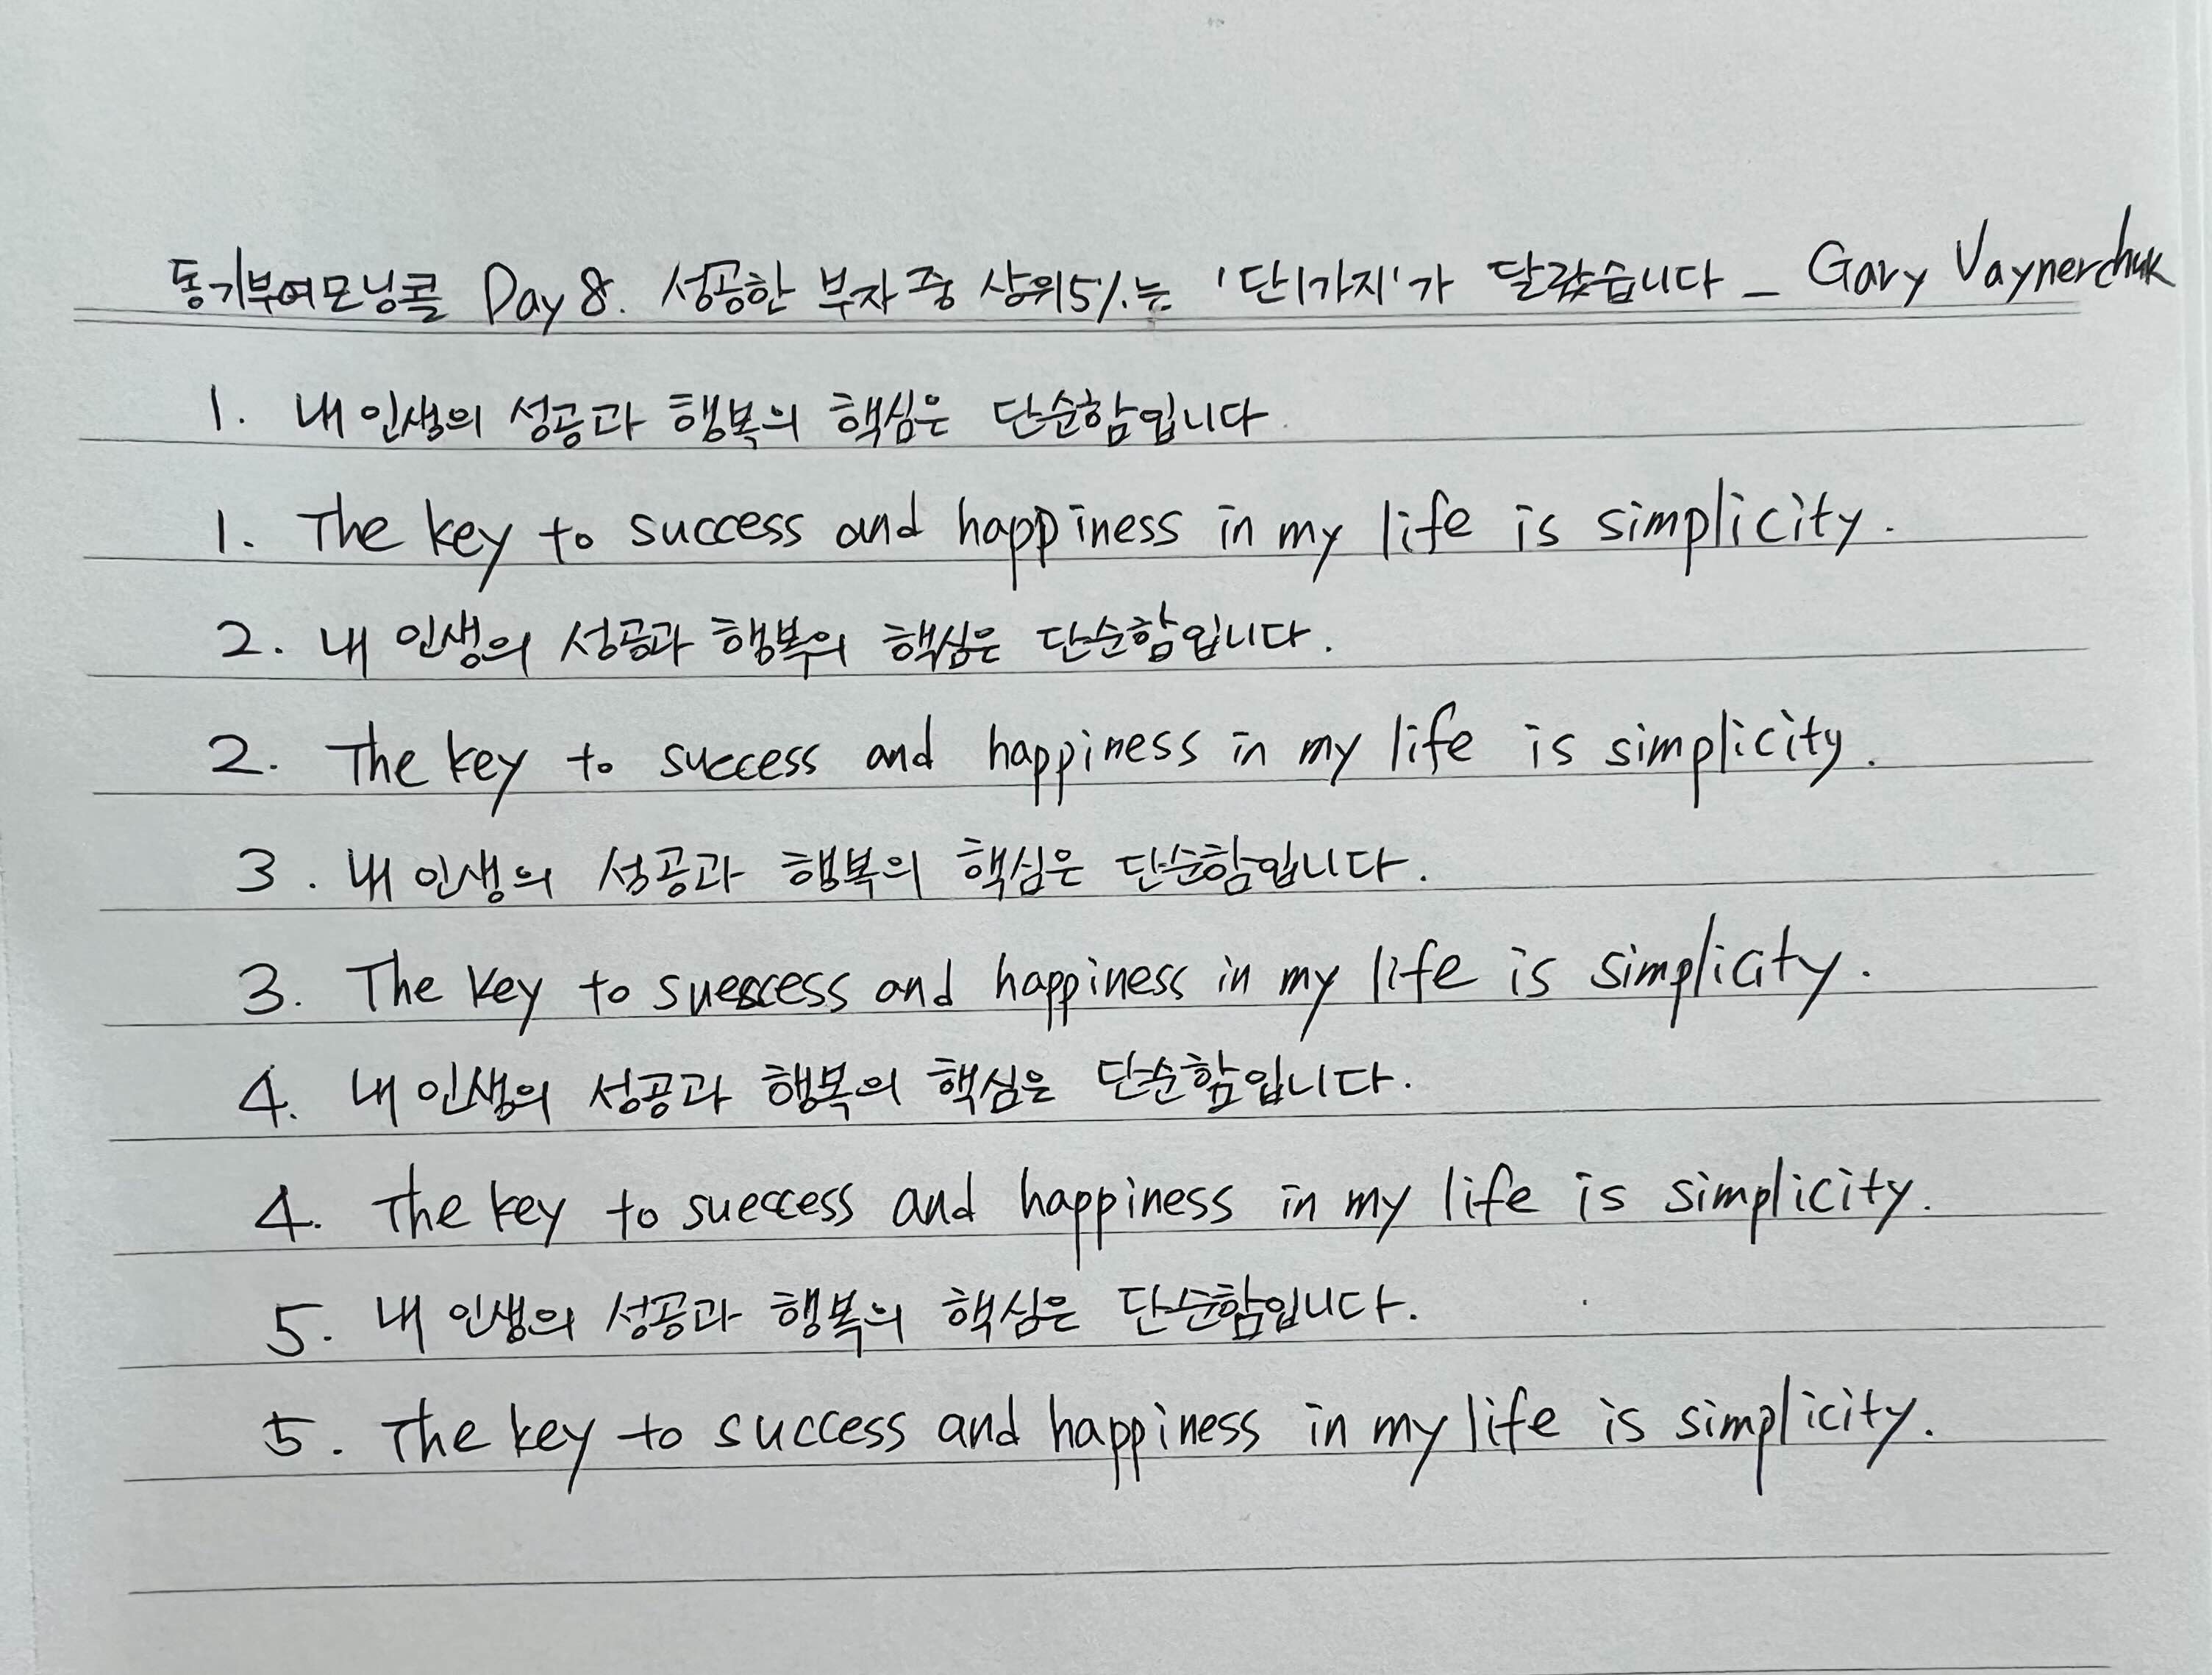 동기부여모닝콜 Day 8. 성공한 부자 중 상위5%는 '단1가지'가 달랐습니다 _ Gary Vaynerchuk
1. 내 인생의 성공과 행복의 핵심은 단순함입니다.
1. The key to success and happiness in my life is simplicity.
2. 내 인생의 성공과 행복의 핵심은 단순함입니다.
2. The key to success and happiness in my life is simplicity.
3. 내 인생의 성공과 행복의 핵심은 단순함입니다.
3. The key to success and happiness in my life is simplicity.
4. 내 인생의 성공과 행복의 핵심은 단순함입니다.
4. The key to success and happiness in my life is simplicity.
5. 내 인생의 성공과 행복의 핵심은 단순함입니다.
5. The key to success and happiness in my life is simplicity.